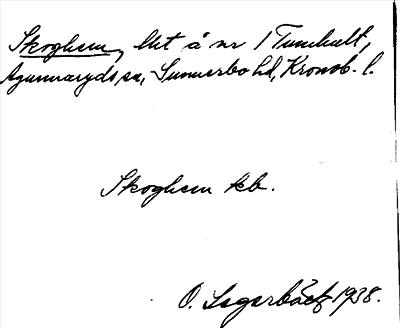 Skoghem, lht å nr 1 Tunhult,
Agunnaryds sn, Sunnerbo hd, Kronob. l.
Skoghem kb.
O. Lagerbäck 1938.